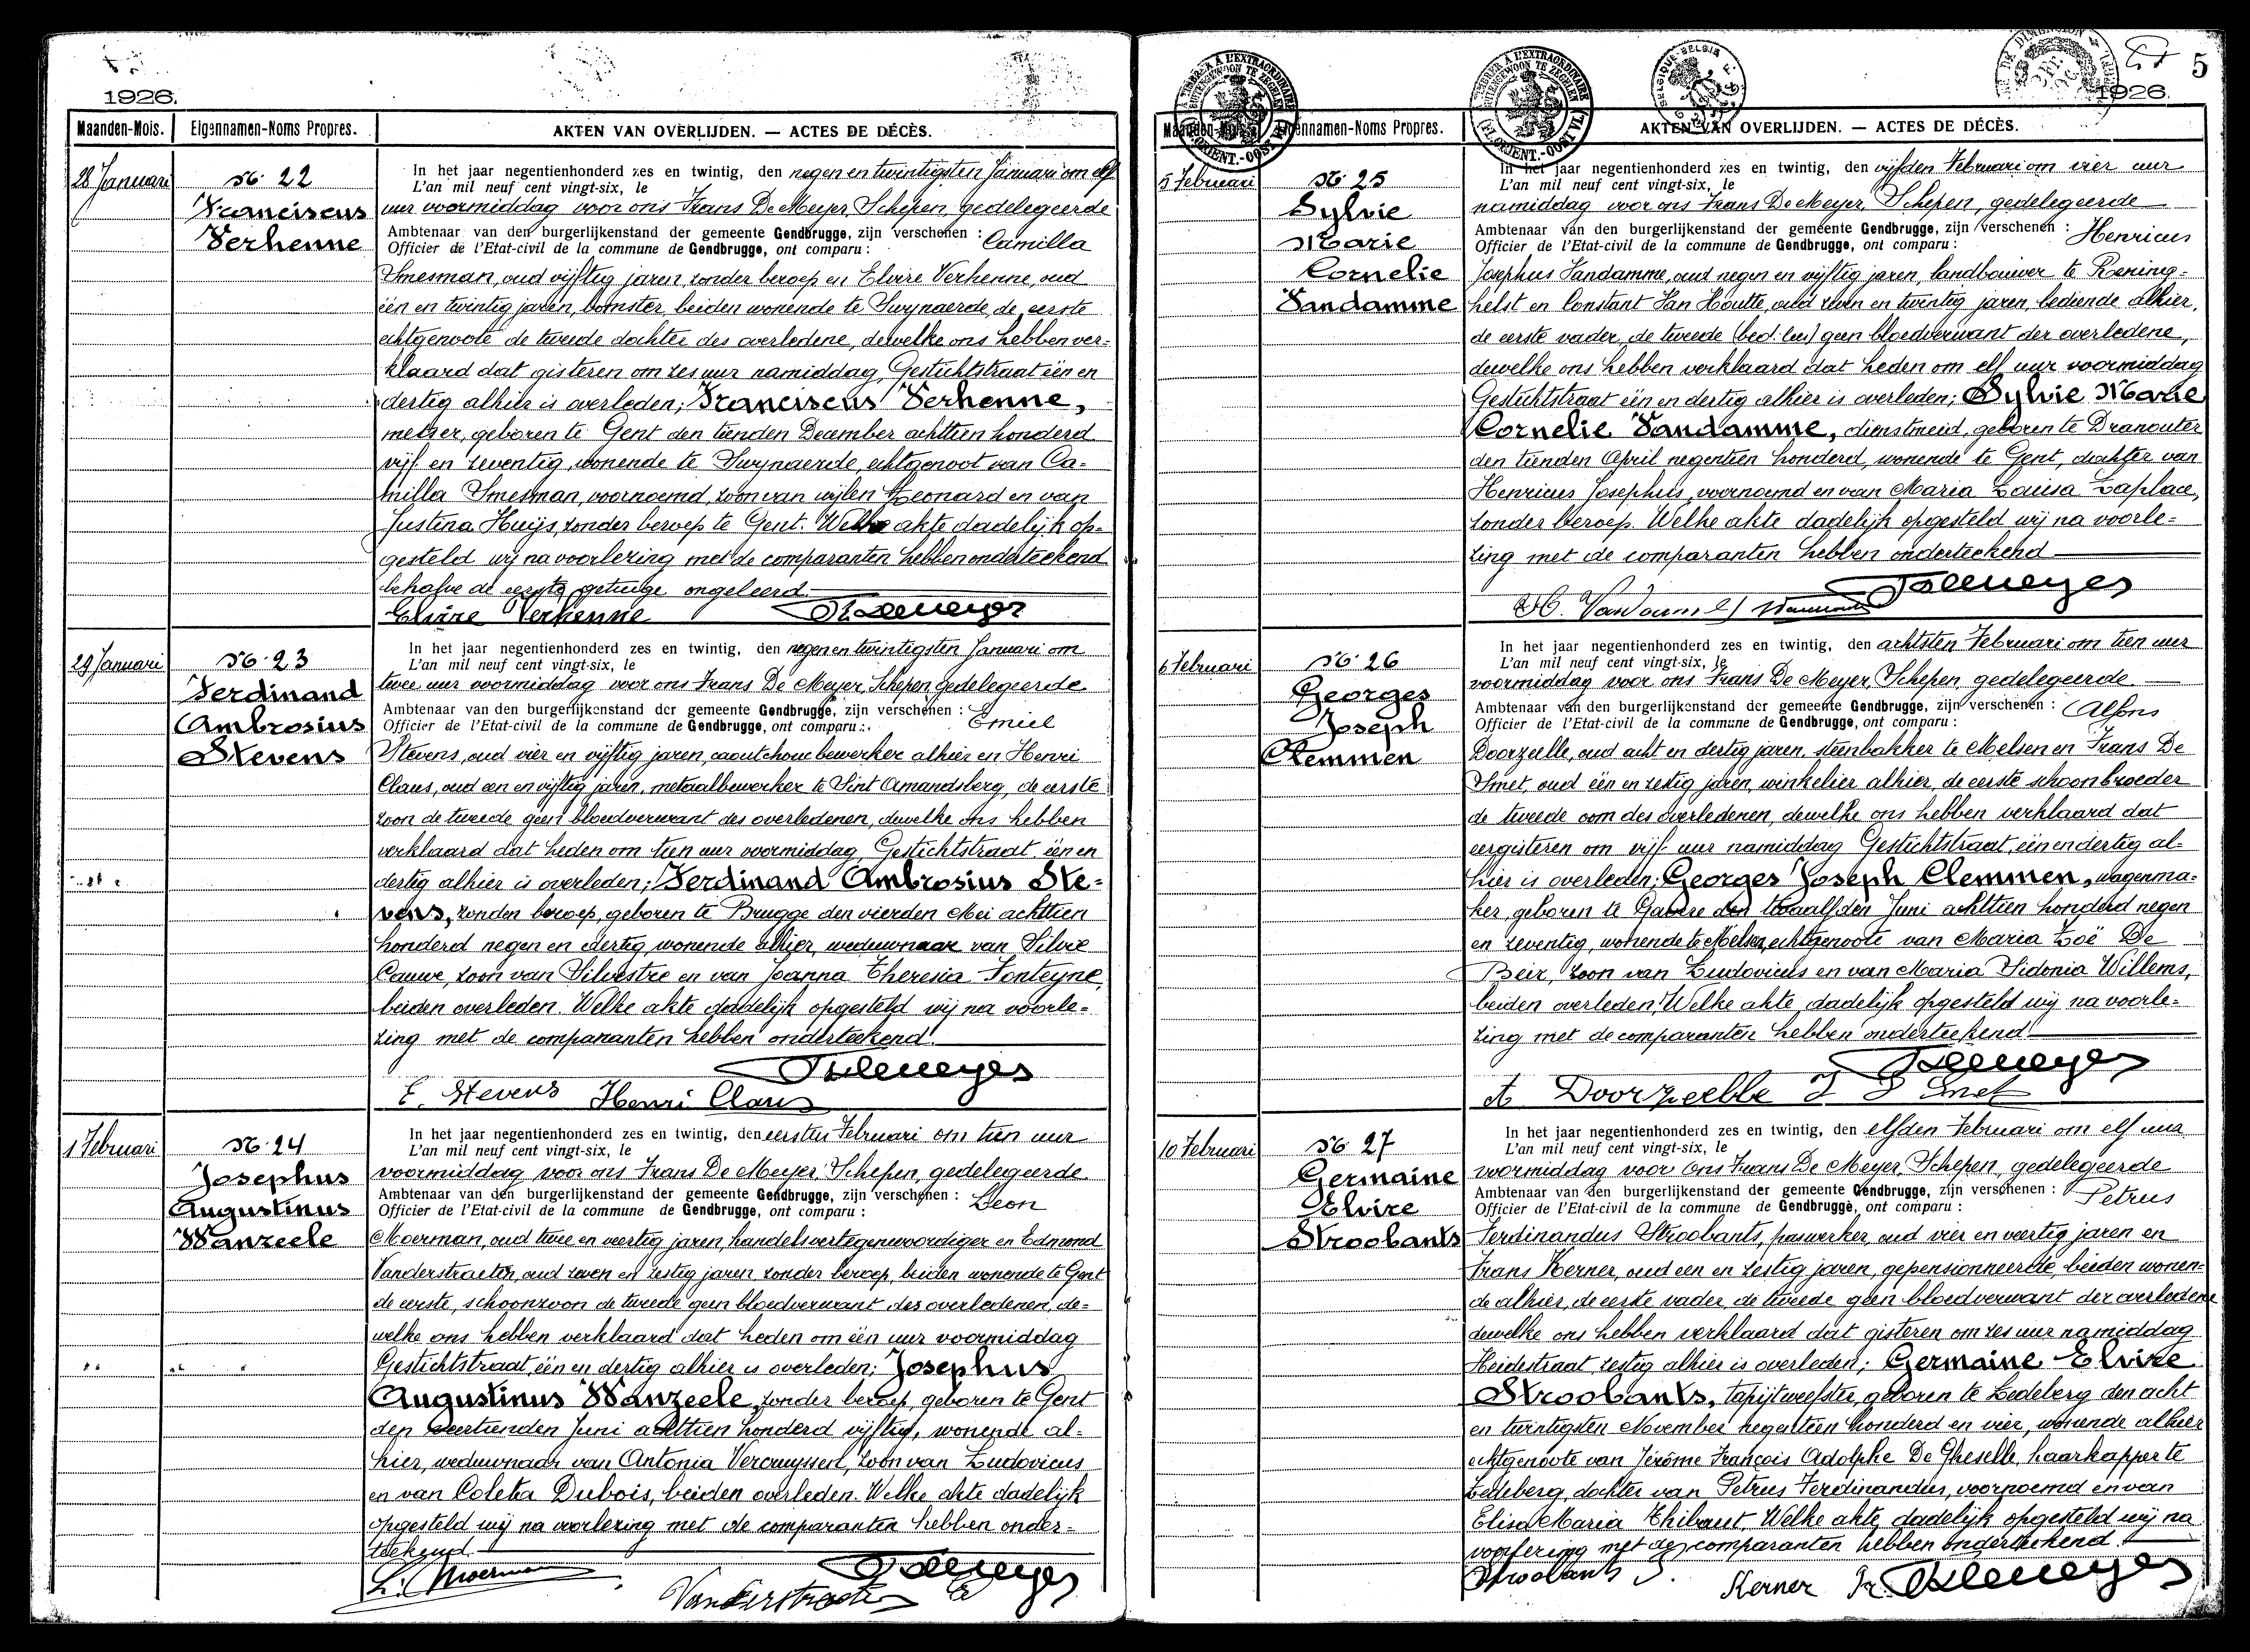 1926.
Maanden-Mois.
Eigennamen-Noms Propres.
AKTEN VAN OVERLIJDEN. — ACTES DE DÉCÈS.
28 Januari
No 22
Franciscus
Verhenne
In het jaar negentienhonderd zes en twintig, den negen en twintigsten Januari om elf
L'an mil neuf cent vingt-six, le
uur voormiddag voor ons Frans De Meyer, Schepen, gedelegeerde
Ambtenaar van den burgerlijkenstand der gemeente Gendbrugge, zijn verschenen : Camilla
Officier de l'Etat-civil de la commune de Gendbrugge, ont comparu :
Smesman, oud vijftig jaren, zonder beroep en Elvire Verhenne, oud
één en twintig jaren, bomster, beiden wonende te Swynaerde, de eerste
echtgenoote de tweede dochter des overledene, dewelke ons hebben ver-
klaard dat gisteren om zes uur namiddag, Gestichtstraat één en
dertig alhier is overleden; Franciscus Verhenne,
metser, geboren te Gent den tienden December achttien honderd
vijf en zeventig, wonende te Swynaerde, echtgenoot van Ca-
milla Smesman, voornoemd, zoon van wijlen Leonard en van
Justina Huijs, zonder beroep te Gent. Welke akte dadelijk op-
gesteld wij na voorlezing met de comparanten hebben onderteekend
behalve de eerste getuige ongeleerd.
Elvire Verhenne FDemeyer
29 Januari
No 23
Ferdinand
Ambrosius
Stevens
In het jaar negentienhonderd zes en twintig, den negen en twintigsten Januari om
L'an mil neuf cent vingt-six, le
twee uur voormiddag voor ons Frans De Meyer, Schepen, gedelegeerde
Ambtenaar van den burgerlijkenstand der gemeente Gendbrugge, zijn verschenen : Emiel
Officier de l'Etat-civil de la commune de Gendbrugge, ont comparu :
Stevens, oud vier en vijftig jaren, caoutchouc bewerker alhier en Henri
Claus, oud een en vijftig jaren, metaalbewerker te Sint Amandsberg, de eerste
zoon de tweede geen bloedverwant des overledenen, dewelke ons hebben
verklaard dat heden om tien uur voormiddag, Gestichtstraat, één en
dertig alhier is overleden; Ferdinand Ambrosius Ste-
vens, zonder beroep, geboren te Brugge den vierden Mei achttien
honderd negen en dertig, wonende alhier, weduwnaar van Silvie
Cauwe, zoon van Silvestre en van Joanna Theresia Fonteyne,
beiden overleden. Welke akte dadelijk opgesteld wij na voorle-
zing met de comparanten hebben onderteekend.
FDemeyer
E. Stevens Henri Claus
1 Februari
No 24
Josephus
Augustinus
Wanzeele
In het jaar negentienhonderd zes en twintig, den eersten Februari om tien uur
L'an mil neuf cent vingt-six, le
voormiddag voor ons Frans De Meyer, Schepen, gedelegeerde
Ambtenaar van den burgerlijkenstand der gemeente Gendbrugge, zijn verschenen : Leon
Officier de l'Etat-civil de la commune de Gendbrugge, ont comparu :
Moerman, oud twee en veertig jaren, handelsvertegenwoordiger en Edmond
Vanderstraeten, oud zeven en zestig jaren zonder beroep, beiden wonende te Gent
de eerste, schoonzoon de tweede geen bloedverwant des overledenen, de-
welke ons hebben verklaard dat heden om één uur voormiddag
Gestichtstraat, één en dertig alhier is overleden; Josephus
Augustinus Wanzeele, zonder beroep, geboren te Gent
den veertienden Juni achttien honderd vijftig, wonende al-
hier, weduwnaar van Antonia Vercruyssen, zoon van Ludovicus
en van Coleta Dubois, beiden overleden. Welke akte dadelijk
opgesteld wij na voorlezing met de comparanten hebben onder-
teekend.
L. Moerman FDemeyer
Vanderstraeten E
5
1926.
Maanden-Mois.
Eigennamen-Noms Propres.
AKTEN VAN OVERLIJDEN. — ACTES DE DÉCÈS.
5 Februari
No 25
Sylvie
Marie
Cornelie
Vandamme
In het jaar negentienhonderd zes en twintig, den vijfden Februari om vier uur
L'an mil neuf cent vingt-six, le
namiddag voor ons Frans De Meyer, Schepen, gedelegeerde
Ambtenaar van den burgerlijkenstand der gemeente Gendbrugge, zijn verschenen : Henricus
Officier de l'Etat-civil de la commune de Gendbrugge, ont comparu :
Josephus Vandamme, oud negen en vijftig jaren, landbouwer te Rening-
helst en Constant Van Houtte, oud zeven en twintig jaren, bediende alhier,
de eerste vader, de tweede geen bloedverwant der overledene,
dewelke ons hebben verklaard dat heden om elf uur voormiddag
Gestichtstraat één en dertig alhier is overleden; Sylvie Marie
Cornelie Vandamme, dienstmeid, geboren te Dranouter
den tienden April negentien honderd, wonende te Gent, dochter van
Henricus Josephus, voornoemd en van Maria Louisa Laplace,
zonder beroep. Welke akte dadelijk opgesteld wij na voorle-
zing met de comparanten hebben onderteekend
FDemeyer
6 Februari
No 26
Georges
Joseph
Clemmen
In het jaar negentienhonderd zes en twintig, den achtsten Februari om tien uur
L'an mil neuf cent vingt-six, le
voormiddag voor ons Frans De Meyer, Schepen, gedelegeerde
Ambtenaar van den burgerlijkenstand der gemeente Gendbrugge, zijn verschenen : Alfons
Officier de l'Etat-civil de la commune de Gendbrugge, ont comparu :
Doorzeelle, oud acht en dertig jaren, steenbakker te Melsen en Frans De
Smet, oud één en zestig jaren, winkelier alhier, de eerste schoonbroeder
de tweede oom des overledenen, dewelke ons hebben verklaard dat
eergisteren om vijf uur namiddag Gestichtstraat, één en dertig al-
hier is overleden; Georges Joseph Clemmen, wagenma-
ker, geboren te Gavere den twaalfden Juni achttien honderd negen
en zeventig, wonende te Melsen, echtgenoote van Maria Zoë De
Beir, zoon van Ludovicus en van Maria Sidonia Willems,
beiden overleden. Welke akte dadelijk opgesteld wij na voorle-
zing met de comparanten hebben onderteekend.
FDemeyer
A Doorzeelle F D Smet
10 Februari
No 27
Germaine
Elvire
Stroobants
In het jaar negentienhonderd zes en twintig, den elfden Februari om elf uur
L'an mil neuf cent vingt-six, le
voormiddag voor ons Frans De Meyer, Schepen, gedelegeerde
Ambtenaar van den burgerlijkenstand der gemeente Gendbrugge, zijn verschenen : Petrus
Officier de l'Etat-civil de la commune de Gendbrugge, ont comparu :
Ferdinandus Stroobants, paswerker, oud vier en veertig jaren en
Frans Kerner, oud een en zestig jaren, gepensionneerde, beiden wonen-
de alhier, de eerste vader, de tweede geen bloedverwant der overledene
dewelke ons hebben verklaard dat gisteren om zes uur namiddag
Heidestraat zestig alhier is overleden; Germaine Elvire
Stroobants, tapijtweefster, geboren te Ledeberg den acht
en twintigsten November negentien honderd en vier, wonende alhier
echtgenoote van Jérôme François Adolphe De Gheselle, haarkapper te
Ledeberg, dochter van Petrus Ferdinandus, voornoemd en van
Elisa Maria Thibaut. Welke akte dadelijk opgesteld wij na
voorlezing met de comparanten hebben onderteekend.
Stroobants Kerner Fr. FDemeyer